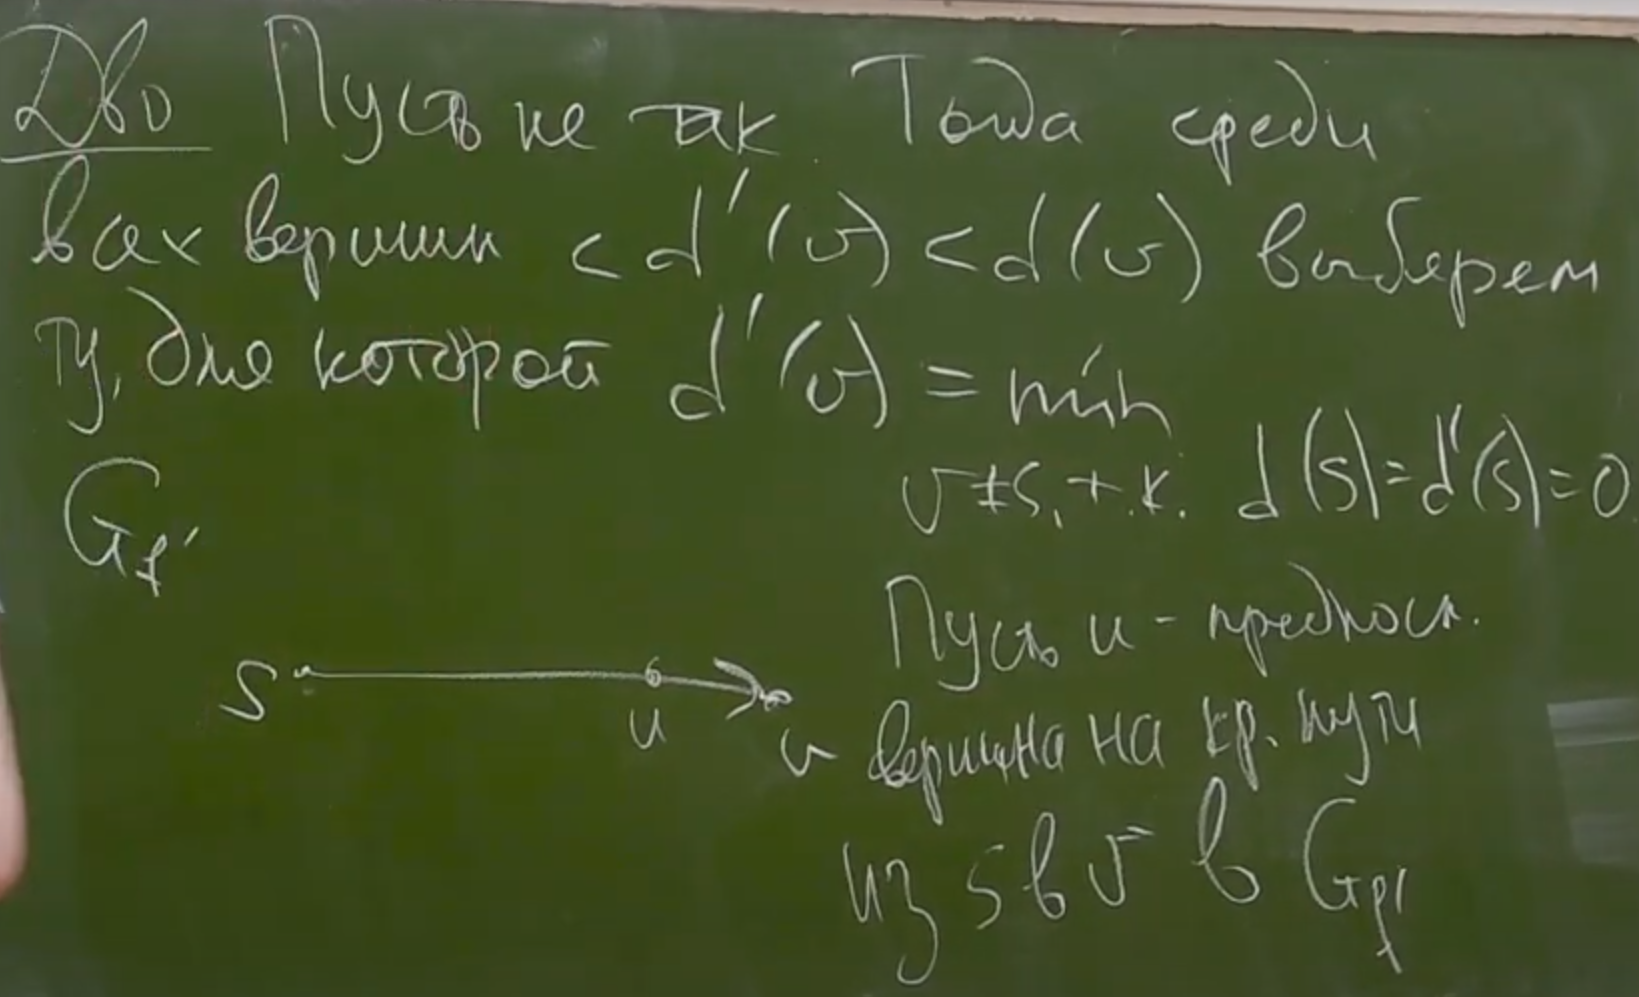 Дво Пусть не так. Тогда среди
всех вершин с d'(v) < d(v) выберем
ту, для которой d'(v) = min
v ≠ s, т.к. d(s) = d'(s) = 0.
G_f'
Пусть u - предпосл.
s u v
вершина на кр. пути
из s в v в G_f'